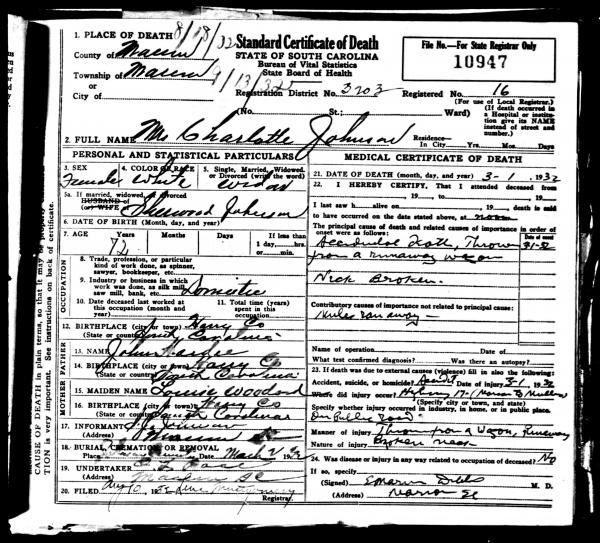 CAUSE OF DEATH in plain terms, so that it may be pr
TION is very important. See instructions on back of certificate.
1. PLACE OF DEATH 8/18/32
County of Marion
Township of Marion 9/13/32
or
City of
Standard Certificate of Death
STATE OF SOUTH CAROLINA
Bureau of Vital Statistics
State Board of Health
File No.—For State Registrar Only
10947
Registration District No. 3203 Registered No. 16
(For use of Local Registrar.)
(No. St.; Ward)
(If death occurred in a Hospital or institution give its NAME instead of street and number.)
2. FULL NAME Mrs Charlotte Johnson
Residence— In City Yrs. Mos. Days
PERSONAL AND STATISTICAL PARTICULARS
3. SEX Female
4. COLOR OR RACE White
5. Single, Married, Widowed, or Divorced (write the word) Widow
5a. If married, widowed or divorced
HUSBAND of
(or) WIFE Johnson
6. DATE OF BIRTH (month, day, and year)
7. AGE Years Months Days If less than
72
1 day, hrs.
or min.
OCCUPATION
8. Trade, profession, or particular kind of work done, as spinner, sawyer, bookkeeper, etc.
9. Industry or business in which work was done, as silk mill, saw mill, bank, etc. Domestic
10. Date deceased last worked at this occupation (month and year)
11. Total time (years) spent in this occupation
12. BIRTHPLACE (city or town) Horry Co
(State or country) South Carolina
FATHER
13. NAME John
14. BIRTHPLACE (city or town) Horry Co
(State or country) South Carolina
MOTHER
15. MAIDEN NAME Louise Woodard
16. BIRTHPLACE (city or town) Horry Co
(State or country) South Carolina
17. INFORMANT Johnson
(Address) Marion SC
18. BURIAL, CREMATION OR REMOVAL
Place Date March 2 1932
19. UNDERTAKER
(Address) Marion SC
20. FILED 1932 Montgomery
Registrar.
MEDICAL CERTIFICATE OF DEATH
21. DATE OF DEATH (month, day, and year) 3-1, 1932
22. I HEREBY CERTIFY, That I attended deceased from
, 19 , to , 19
I last saw h alive on , 19 , death is said
to have occurred on the date stated above, at noon
The principal cause of death and related causes of importance in order of onset were as follows:
Date of onset
Accidental Death, Thrown 3-1-32
from a runaway wagon
Neck Broken
Contributory causes of importance not related to principal cause:
Mules ran away
Name of operation Date of
What test confirmed diagnosis? Was there an autopsy?
23. If death was due to external causes (violence) fill in also the following:
Accident, suicide, or homicide? Accident Date of injury 3-1 1932
Where did injury occur? Marion
(Specify city or town, county, and state)
Specify whether injury occurred in industry, in home, or in public place.
On Public Road
Manner of injury Thrown from a Wagon, Runaway
Nature of injury Broken neck
24. Was disease or injury in any way related to occupation of deceased? No
If so, specify
(Signed) M. D.
(Address) Marion SC